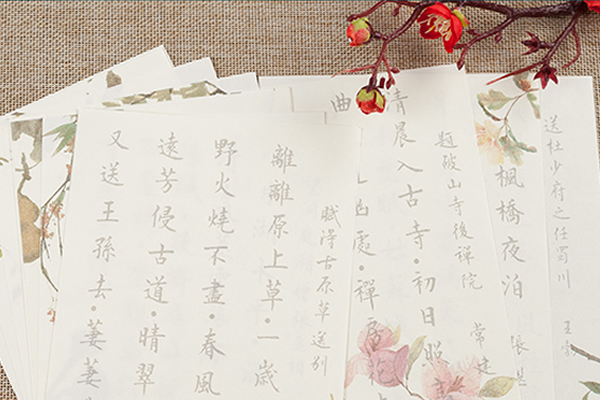 送杜少府之任蜀川 王勃
楓橋夜泊 張
題破山寺後禅院 常建
清晨入古寺·初日照
曲 處·禪房
賦得古原草送别
離離原上草·一歲
野火燒不盡·春風
遠芳侵古道·晴翠
又送王孫去·萋萋